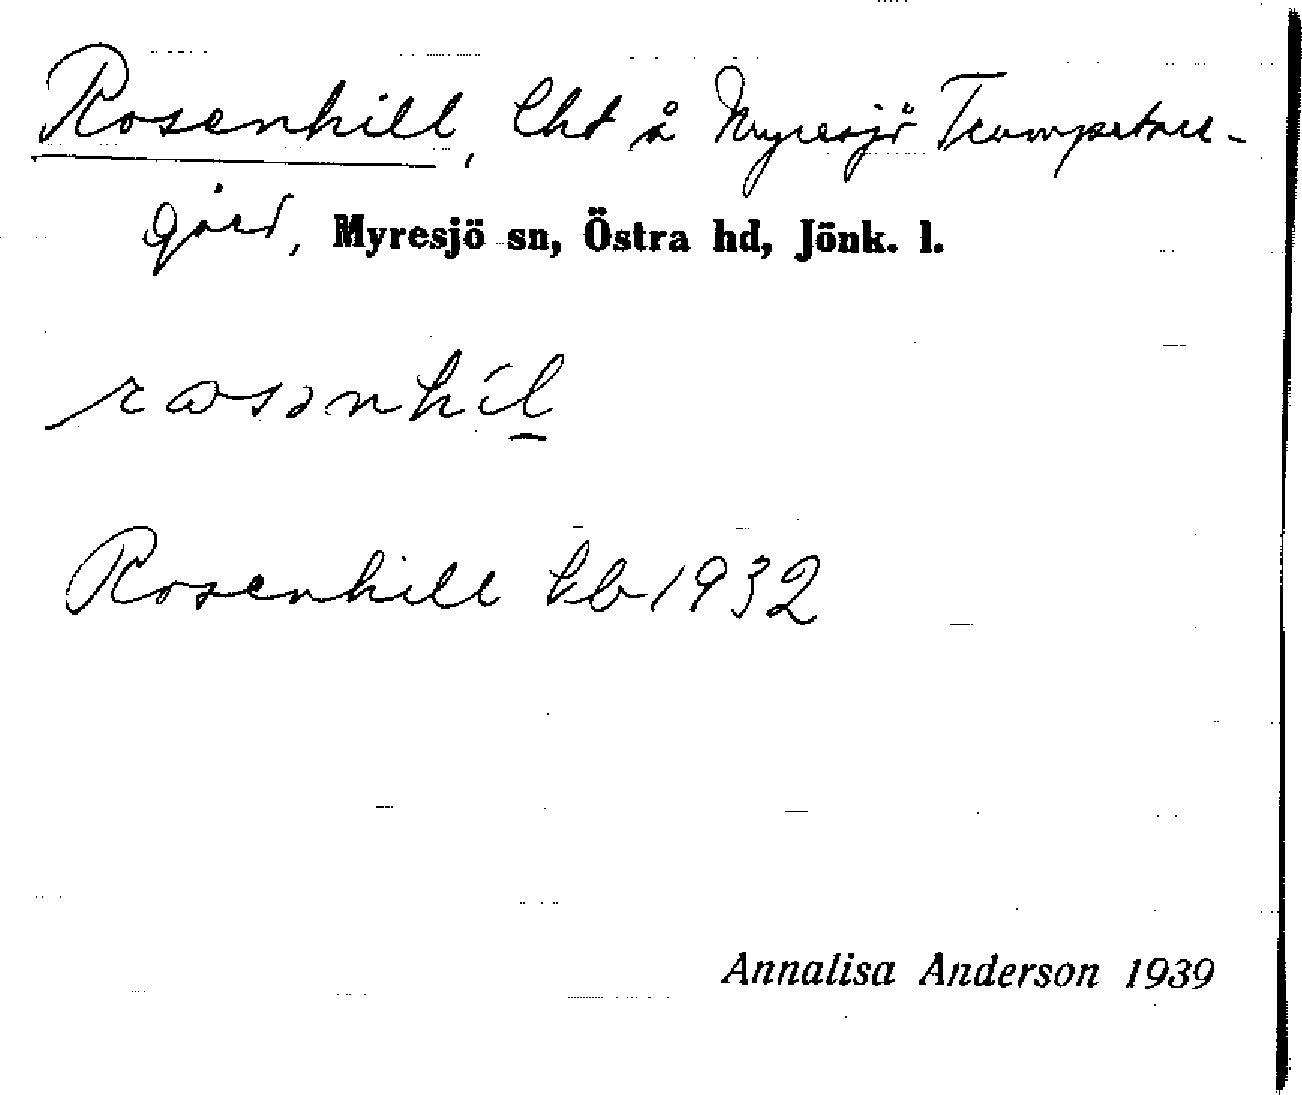 Rosenhill, lht å Myresjö Trumpetare-
gård, Myresjö sn, Östra hd, Jönk. l.
rosənhíl
Rosenhill kb 1932
Annalisa Anderson 1939